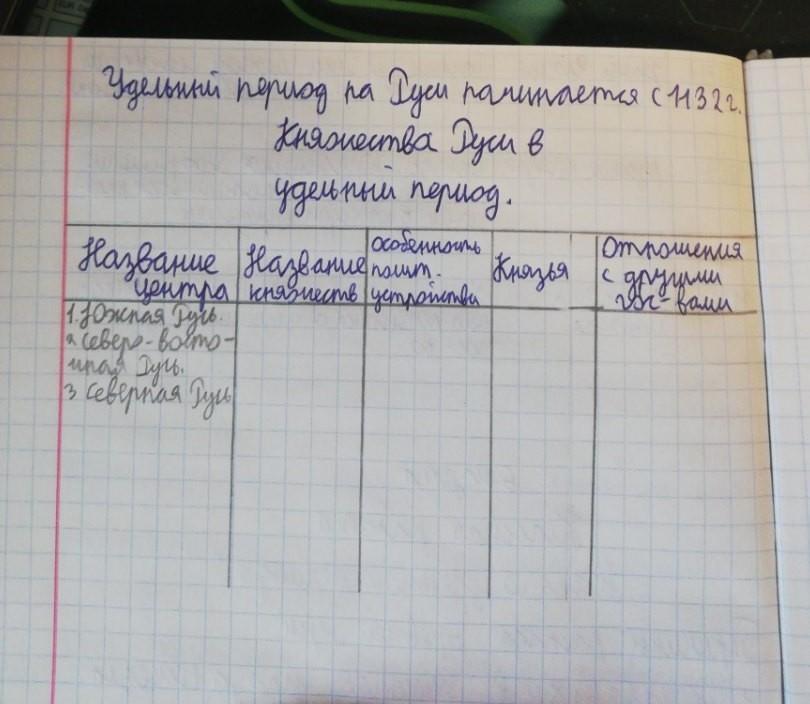 Удельный период на Руси начинается с 1132 г.
Княжества Руси в
удельный период.
Название центра
Название княжеств
Особенность полит. устройства
Князья
Отношения с другими гос-вами
1. Южная Русь.
2 Северо-восто-
чная Русь.
3 Северная Русь